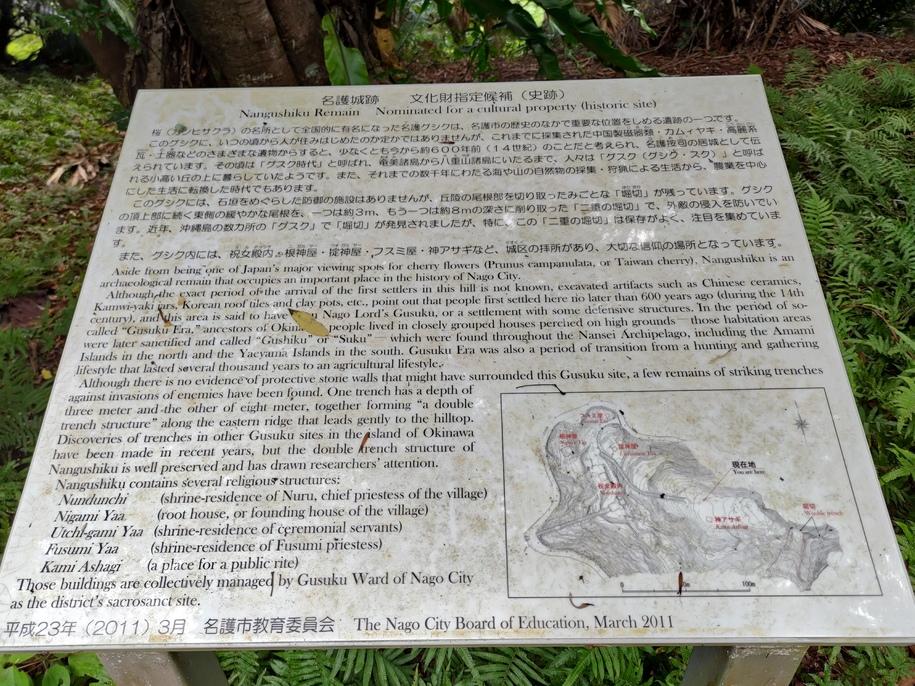 名護城跡　文化財指定候補（史跡）
Nangushiku Remain　Nominated for a cultural property (historic site)
桜（カンヒサクラ）の名所として全国的に有名になった名護グシクは、名護市の歴史のなかで重要な位置をしめる遺跡の一つです。
このグシクに、いつの頃から人が住みはじめたのか定かではありませんが、これまでに採集された中国製磁器類・カムィヤキ・高麗系
瓦・土器などのさまざまな遺物からすると、少なくとも今から約600年前（14世紀）のことだと考えられ、名護按司の居城として伝
えられています。その頃は「グスク時代」と呼ばれ、奄美諸島から八重山諸島にいたるまで、人々は「グスク（グシク・スク）」と呼ば
れる小高い丘の上に暮らしていたようです。また、それまでの数千年にわたる海や山の自然物の採集・狩猟による生活から、農業を中心
にした生活に転換した時代でもあります。
このグシクには、石垣をめぐらした防御の施設はありませんが、丘陵の尾根部を切り取ったみごとな「堀切」が残っています。グシク
の頂上部に続く東側の緩やかな尾根を、一つは約3m、もう一つは約8mの深さに削り取った「二重の堀切」で、外敵の侵入を防いでい
ます。近年、沖縄島の数カ所の「グスク」で「堀切」が発見されましたが、特に、この「二重の堀切」は保存がよく、注目を集めていま
す。
また、グシク内には、祝女殿内・根神屋・掟神屋・フスミ屋・神アサギなど、城区の拝所があり、大切な信仰の場所となっています。
Aside from being one of Japan's major viewing spots for cherry flowers (Prunus campanulata, or Taiwan cherry), Nangushiku is an
archaeological remain that occupies an important place in the history of Nago City.
Although the exact period of the arrival of the first settlers in this hill is not known, excavated artifacts such as Chinese ceramics,
Kamwi-yaki jars, Korean roof tiles and clay pots, etc., point out that people first settled here no later than 600 years ago (during the 14th
century), and this area is said to have Nago Lord's Gusuku, or a settlement with some defensive structures. In the period of so-
called "Gusuku Era," ancestors of people lived in closely grouped houses perched on high grounds—those habitation areas
were later sanctified and called "Gushiku" or "Suku"—which were found throughout the Nansei Archipelago, including the Amami
Islands in the north and the Yaeyama Islands in the south. Gusuku Era was also a period of transition from a hunting and gathering
lifestyle that lasted several thousand years to an agricultural lifestyle.
Although there is no evidence of protective stone walls that might have surrounded this Gusuku site, a few remains of striking trenches
against invasions of enemies have been found. One trench has a depth of
three meter and the other of eight meter, together forming "a double
trench structure" along the eastern ridge that leads gently to the hilltop.
Discoveries of trenches in other Gusuku sites in the island of Okinawa
have been made in recent years, but the double trench structure of
Nangushiku is well preserved and has drawn researchers' attention.
Nangushiku contains several religious structures:
Nundunchi (shrine-residence of Nuru, chief priestess of the village)
Nigami Yaa (root house, or founding house of the village)
Utchi-gami Yaa (shrine-residence of ceremonial servants)
Fusumi Yaa (shrine-residence of Fusumi priestess)
Kami Ashagi (a place for a public rite)
Those buildings are collectively managed by Gusuku Ward of Nago City
as the district's sacrosanct site.
フスミ屋
根神屋
掟神屋
祝女殿内
現在地
You are here
神アサギ
堀切
0
100m
平成23年（2011）3月　名護市教育委員会　The Nago City Board of Education, March 2011